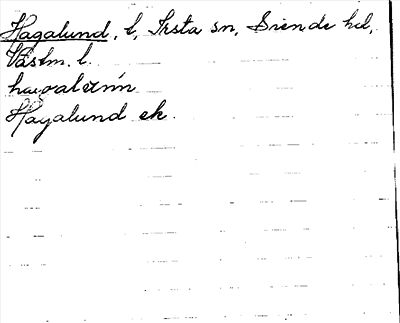 Hagalund, l, Irsta sn, Siende hd,
Västm. l.
hagalunn
Hagalund ek.